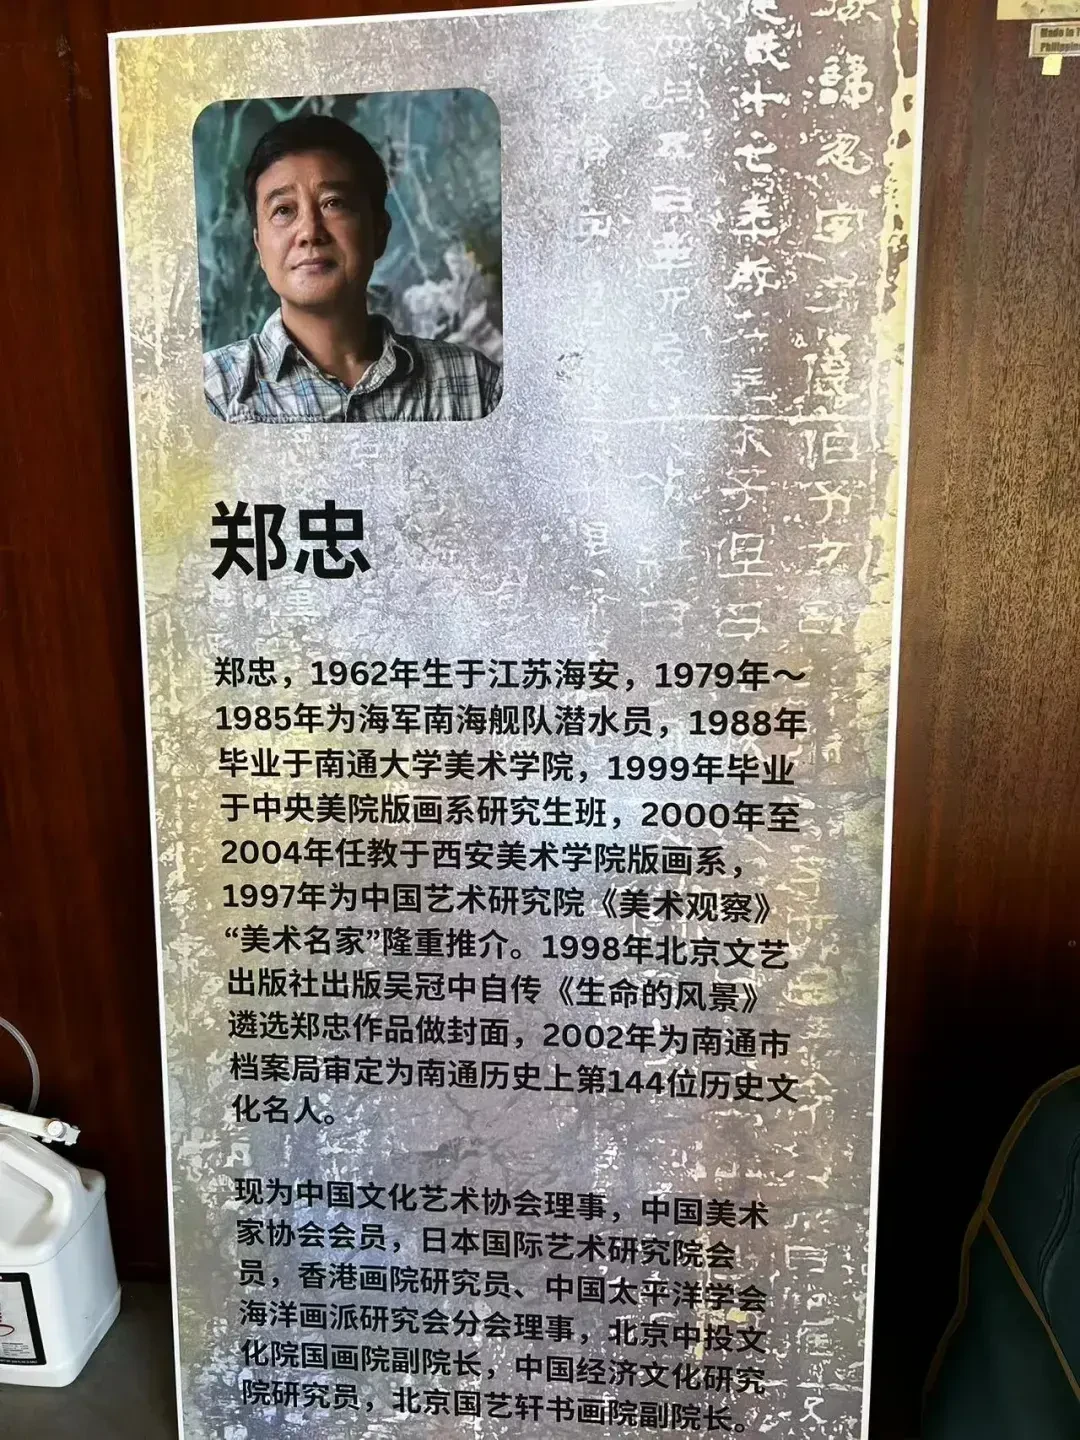 郑忠
郑忠，1962年生于江苏海安，1979年～
1985年为海军南海舰队潜水员，1988年
毕业于南通大学美术学院，1999年毕业
于中央美院版画系研究生班，2000年至
2004年任教于西安美术学院版画系，
1997年为中国艺术研究院《美术观察》
“美术名家”隆重推介。1998年北京文艺
出版社出版吴冠中自传《生命的风景》
遴选郑忠作品做封面，2002年为南通市
档案局审定为南通历史上第144位历史文
化名人。
现为中国文化艺术协会理事，中国美术
家协会会员，日本国际艺术研究院会
员，香港画院研究员、中国太平洋学会
海洋画派研究会分会理事，北京中投文
化院国画院副院长，中国经济文化研究
院研究员，北京国艺轩书画院副院长。